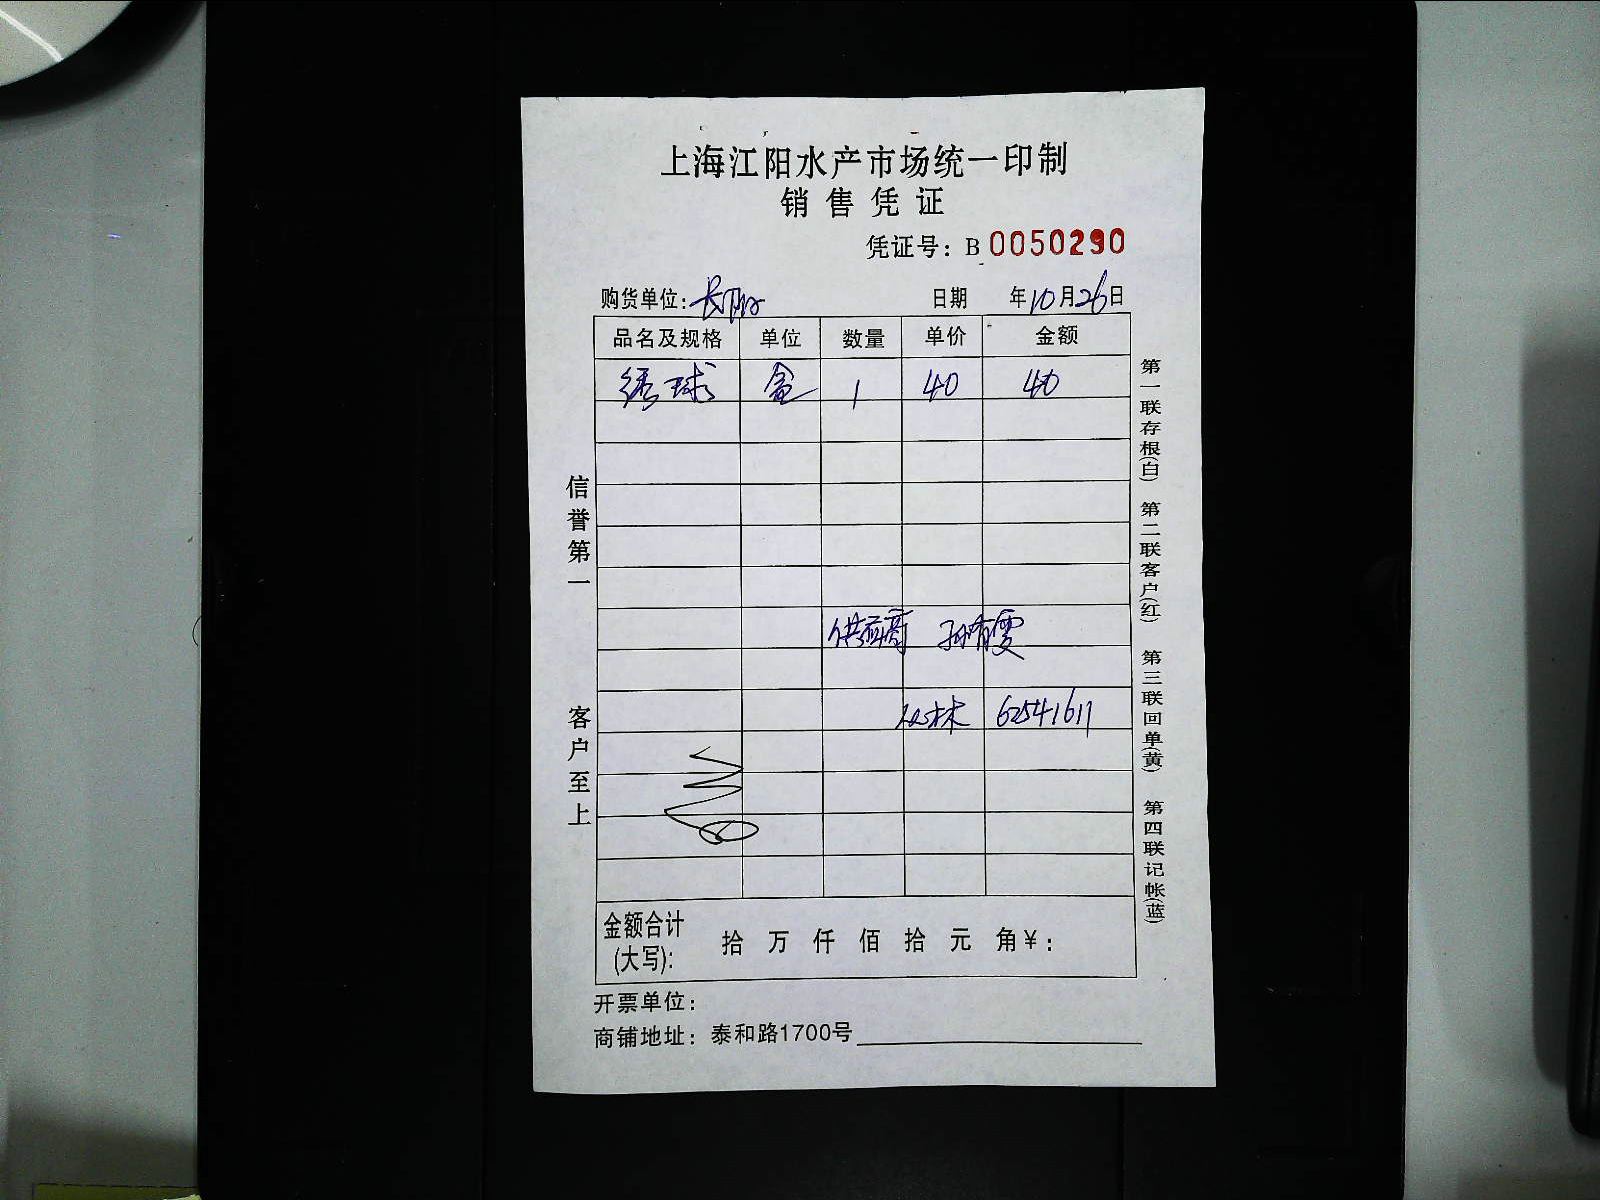 上海江阳水产市场统一印制
销售凭证
凭证号：B 0050290
购货单位： 日期 年10月26日
品名及规格 单位 数量 单价 金额
绣球 盒 1 40 40
供应商 孙有雯
林 62541611
金额合计(大写): 拾 万 仟 佰 拾 元 角￥：
开票单位：
商铺地址：泰和路1700号
信誉第一
客户至上
第一联存根(白) 第二联客户(红) 第三联回单(黄) 第四联记帐(蓝)